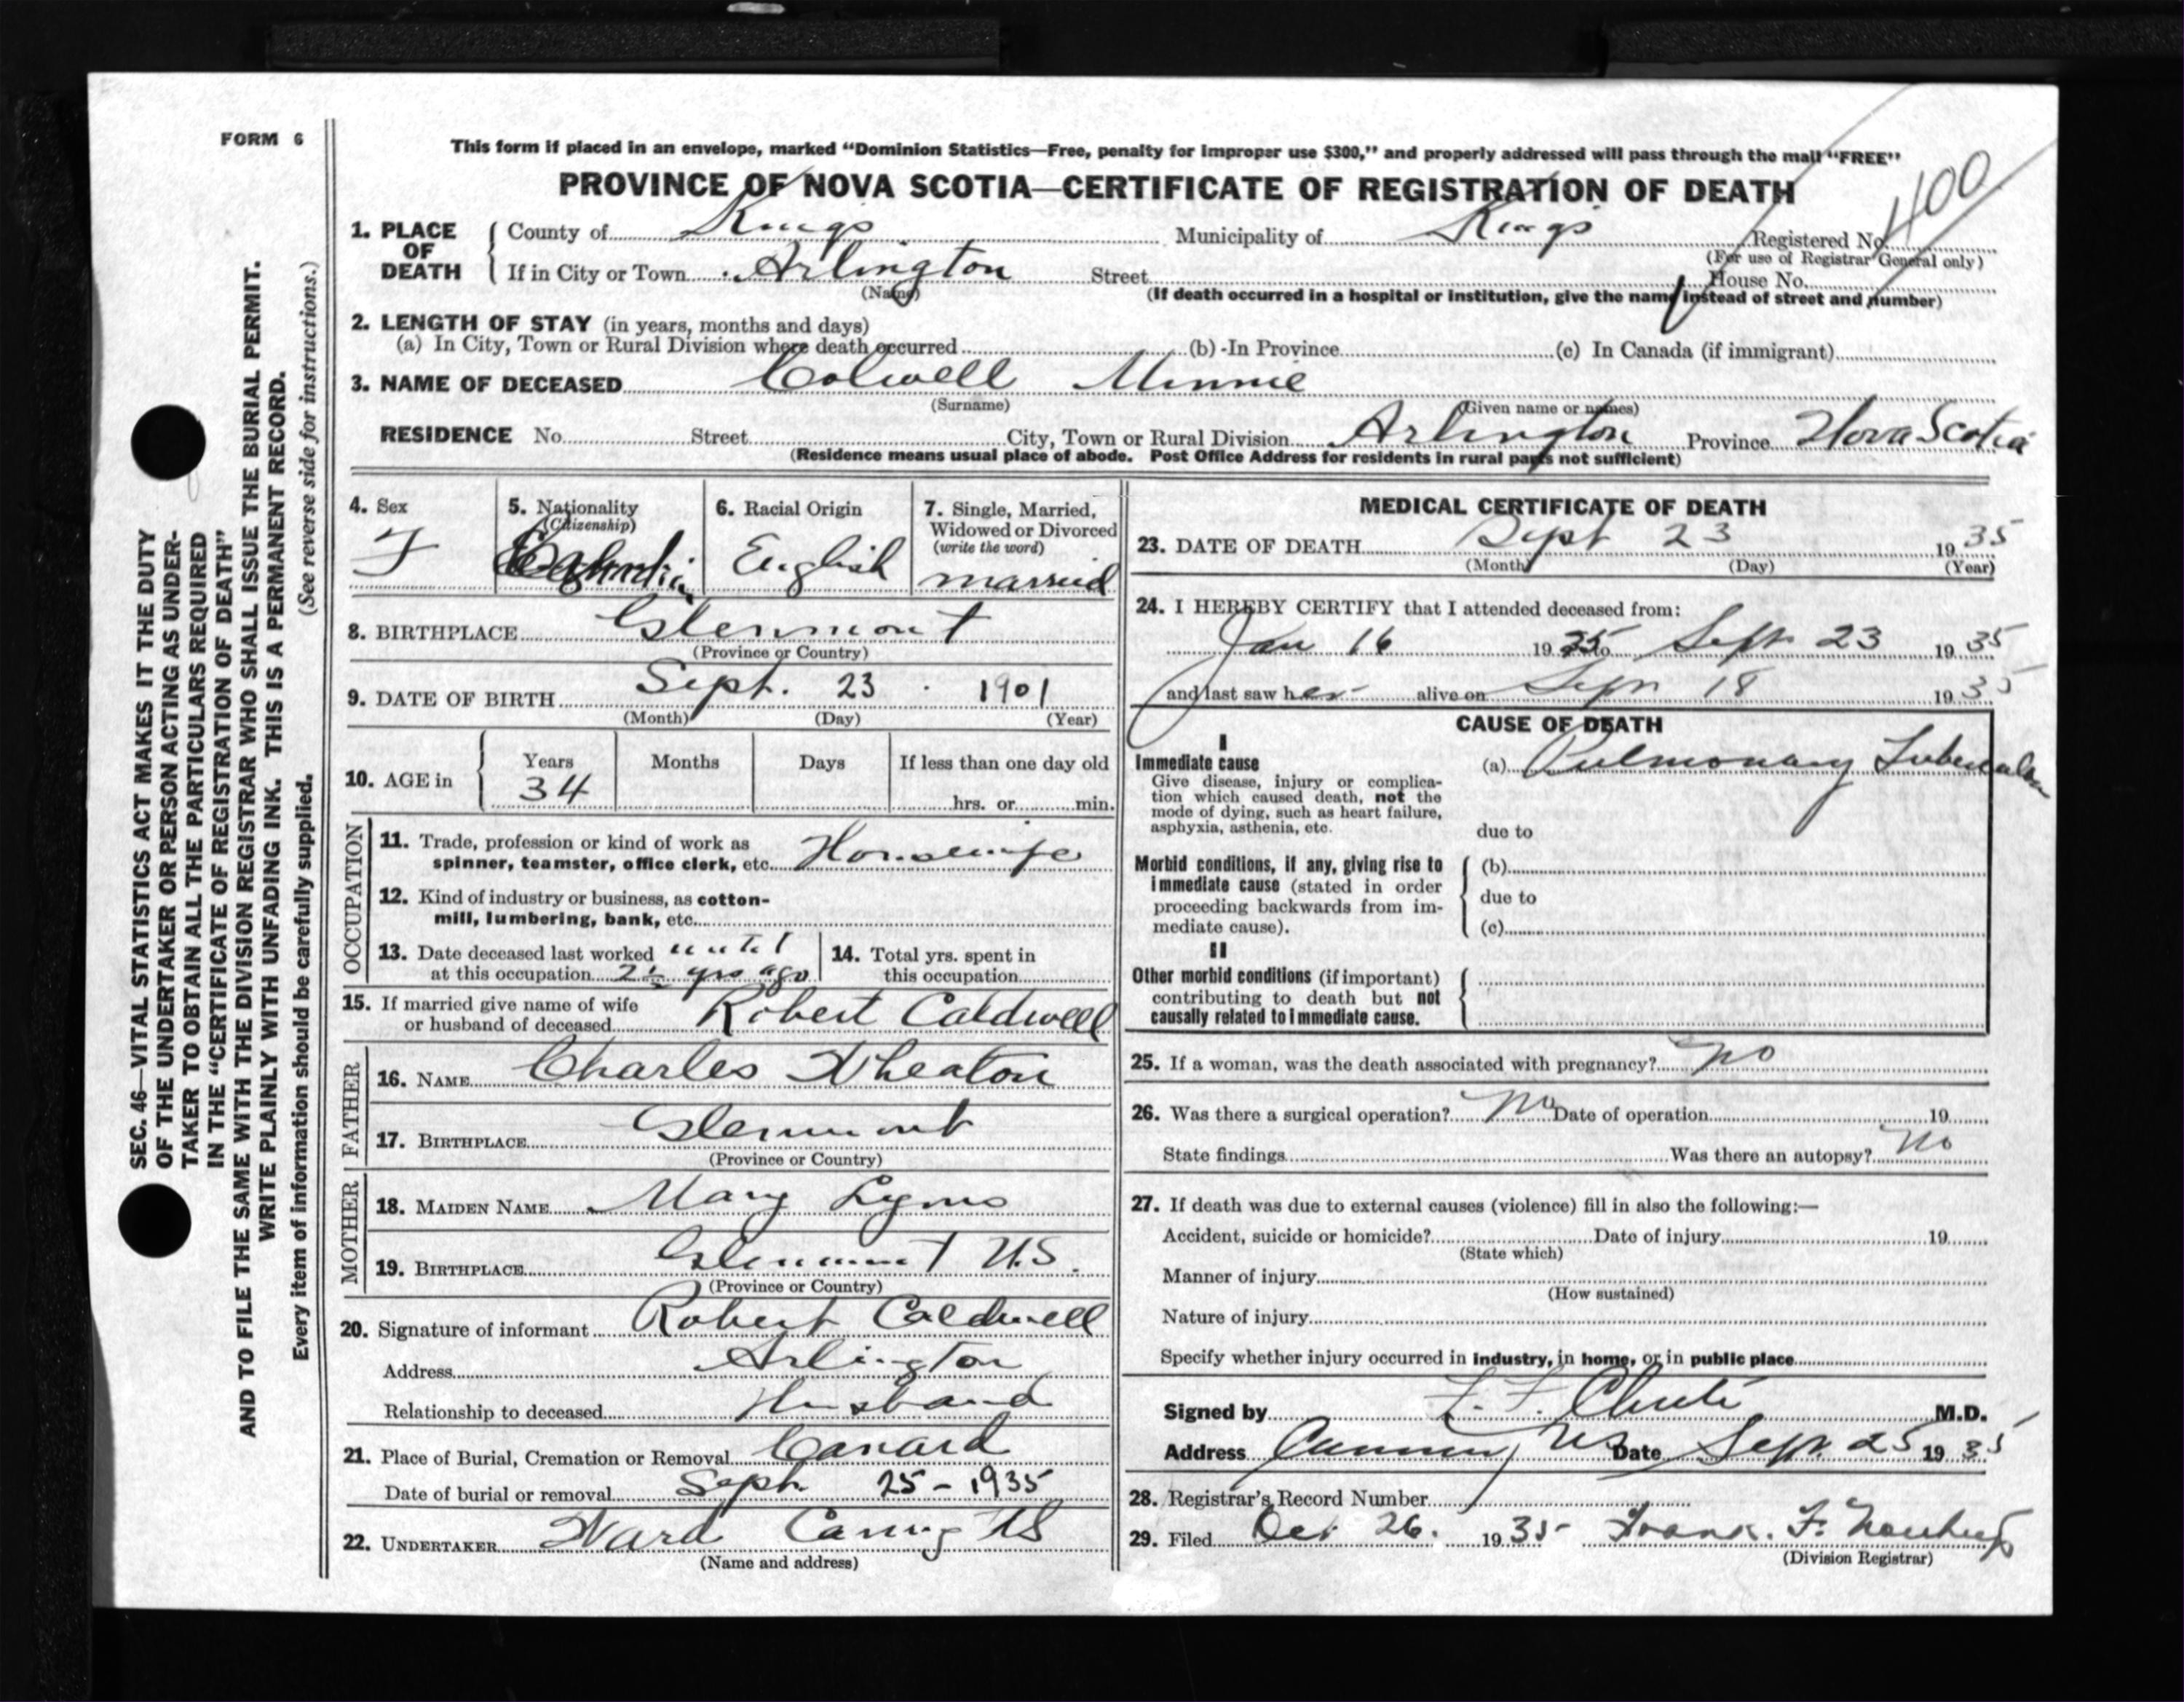 FORM 6
SEC. 46—VITAL STATISTICS ACT MAKES IT THE DUTY
OF THE UNDERTAKER OR PERSON ACTING AS UNDER-
TAKER TO OBTAIN ALL THE PARTICULARS REQUIRED
IN THE "CERTIFICATE OF REGISTRATION OF DEATH"
AND TO FILE THE SAME WITH THE DIVISION REGISTRAR WHO SHALL ISSUE THE BURIAL PERMIT.
WRITE PLAINLY WITH UNFADING INK. THIS IS A PERMANENT RECORD.
Every item of information should be carefully supplied. (See reverse side for instructions.)
This form if placed in an envelope, marked "Dominion Statistics—Free, penalty for improper use $300," and properly addressed will pass through the mail "FREE"
PROVINCE OF NOVA SCOTIA—CERTIFICATE OF REGISTRATION OF DEATH
400
1. PLACE OF DEATH
County of Kings Municipality of Kings Registered No.
(For use of Registrar General only)
If in City or Town Arlington Street House No.
(Name) (If death occurred in a hospital or institution, give the name instead of street and number)
2. LENGTH OF STAY (in years, months and days)
(a) In City, Town or Rural Division where death occurred (b) In Province (c) In Canada (if immigrant)
3. NAME OF DECEASED Colwell Minnie
(Surname) (Given name or names)
RESIDENCE No. Street City, Town or Rural Division Arlington Province Nova Scotia
(Residence means usual place of abode. Post Office Address for residents in rural parts not sufficient)
4. Sex F
5. Nationality (Citizenship)
6. Racial Origin English
7. Single, Married, Widowed or Divorced (write the word) married
8. BIRTHPLACE Glenmont
(Province or Country)
9. DATE OF BIRTH Sept. 23 1901
(Month) (Day) (Year)
10. AGE in Years 34 Months Days If less than one day old
hrs. or min.
OCCUPATION
11. Trade, profession or kind of work as
spinner, teamster, office clerk, etc. Housewife
12. Kind of industry or business, as cotton-
mill, lumbering, bank, etc.
13. Date deceased last worked until
at this occupation yrs ago
14. Total yrs. spent in
this occupation
15. If married give name of wife
or husband of deceased Robert Caldwell
FATHER
16. NAME Charles Wheaton
17. BIRTHPLACE Glenmont
(Province or Country)
MOTHER
18. MAIDEN NAME Mary Lyons
19. BIRTHPLACE Glenmont N.S.
(Province or Country)
20. Signature of informant Robert Caldwell
Address Arlington
Relationship to deceased Husband
21. Place of Burial, Cremation or Removal Canard
Date of burial or removal Sept. 25 - 1935
22. UNDERTAKER Ward Canning NS
(Name and address)
MEDICAL CERTIFICATE OF DEATH
23. DATE OF DEATH Sept 23 1935
(Month) (Day) (Year)
24. I HEREBY CERTIFY that I attended deceased from:
Jan 16 1935 to Sept 23 1935
and last saw her alive on Sept 18 1935
CAUSE OF DEATH
I
Immediate cause (a) Pulmonary
Give disease, injury or complica-
tion which caused death, not the
mode of dying, such as heart failure,
asphyxia, asthenia, etc. due to
Morbid conditions, if any, giving rise to (b)
immediate cause (stated in order
proceeding backwards from im- due to
mediate cause). (c)
II
Other morbid conditions (if important)
contributing to death but not
causally related to immediate cause.
25. If a woman, was the death associated with pregnancy? no
26. Was there a surgical operation? no Date of operation 19
State findings Was there an autopsy? no
27. If death was due to external causes (violence) fill in also the following:—
Accident, suicide or homicide? Date of injury 19
(State which)
Manner of injury
(How sustained)
Nature of injury
Specify whether injury occurred in industry, in home, or in public place
Signed by Chute M.D.
Address Canning, NS Date Sept. 25 1935
28. Registrar's Record Number
29. Filed Oct 26. 1935 Frank. F.
(Division Registrar)